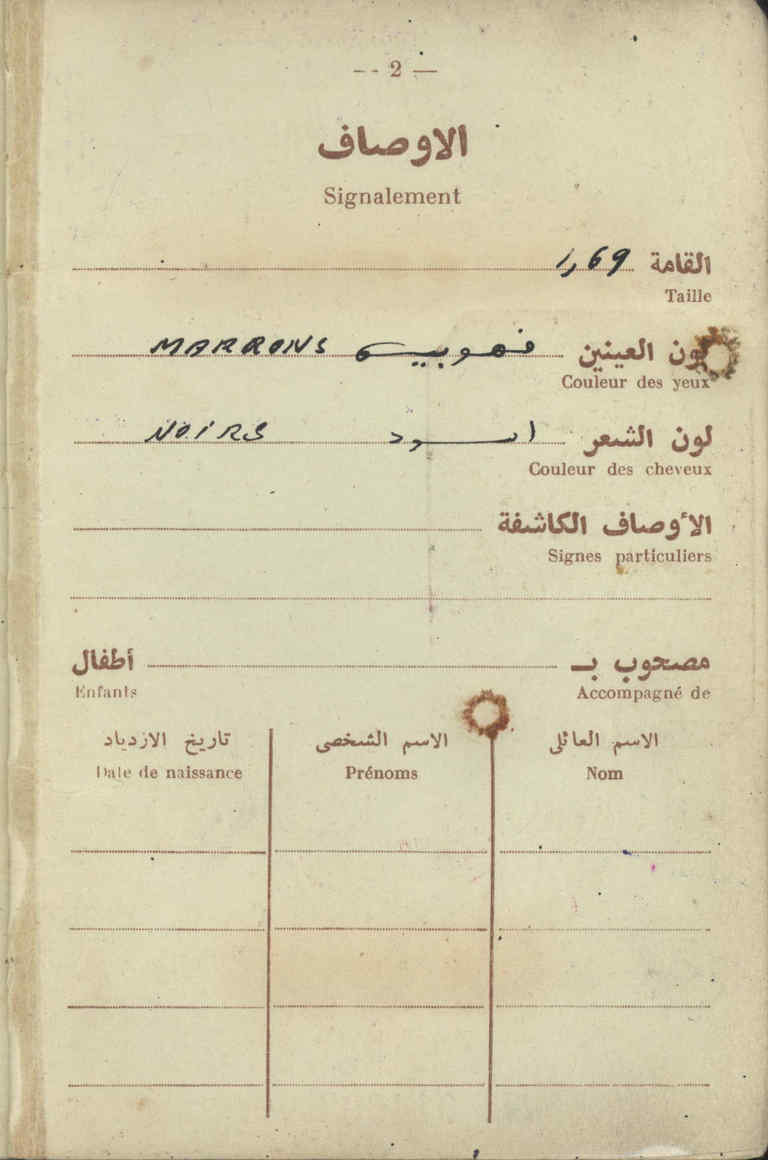 -- 2 —
الاوصاف
Signalement
القامة 1,69
Taille
لون العينين MARRONS
Couleur des yeux
لون الشعر اسود NOIRS
Couleur des cheveux
الأوصاف الكاشفة
Signes particuliers
مصحوب بـ أطفال
Accompagné de Enfants
الاسم العائلى الاسم الشخصى تاريخ الازدياد
Nom Prénoms Date de naissance